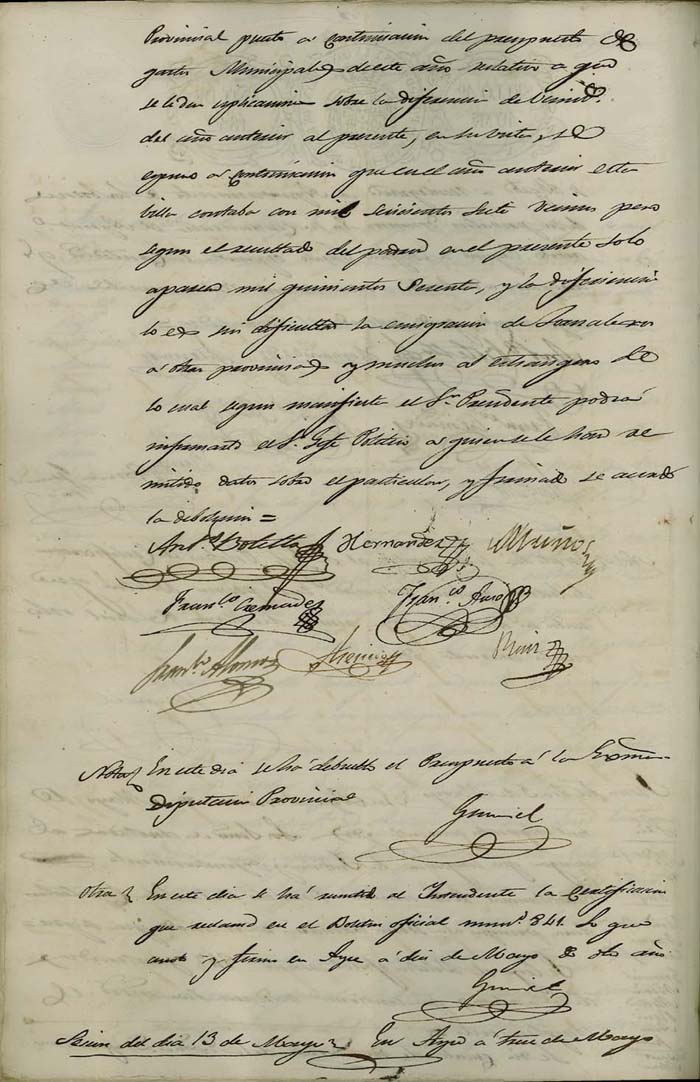 Provincial puesto a continuacion del presupuesto de
gastos Municipales de este año relativo a que
se le den esplicaciones sobre la diferencia de vecinos
del año anterior al presente, en su vista, se
espuso a continuacion que en el año anterior esta
villa contaba con mil seiscientos siete vecinos pero
segun el resultado del padron en el presente solo
aparecen mil quinientos sesenta, y la diferencia
lo es sin dificultad la emigracion de
a otras provincias y muchos al estrangero de
lo cual segun manifiesta el Sr. Presidente podrá
informarlo el Sr. Gefe Politico a quien se le han re
mitido datos sobre el particular, y firmado se acordó
la debolucion =
Ant.º Botella Hernandez Muños
Fran.co Cremades Fran.co
Alonso Ruiz
Nota En este dia se há debuelto el Presupuesto á la Exma
Diputacion Provincial
Gumiel
Otra En este dia se há remitido al Intendente la Certificacion
que reclamó en el Boletin oficial num.º 841. Lo que
anoto y firmo en Aspe a dies de Mayo de dho año
Gumiel
Sesion del dia 13 de Mayo En Aspe á trece de Mayo